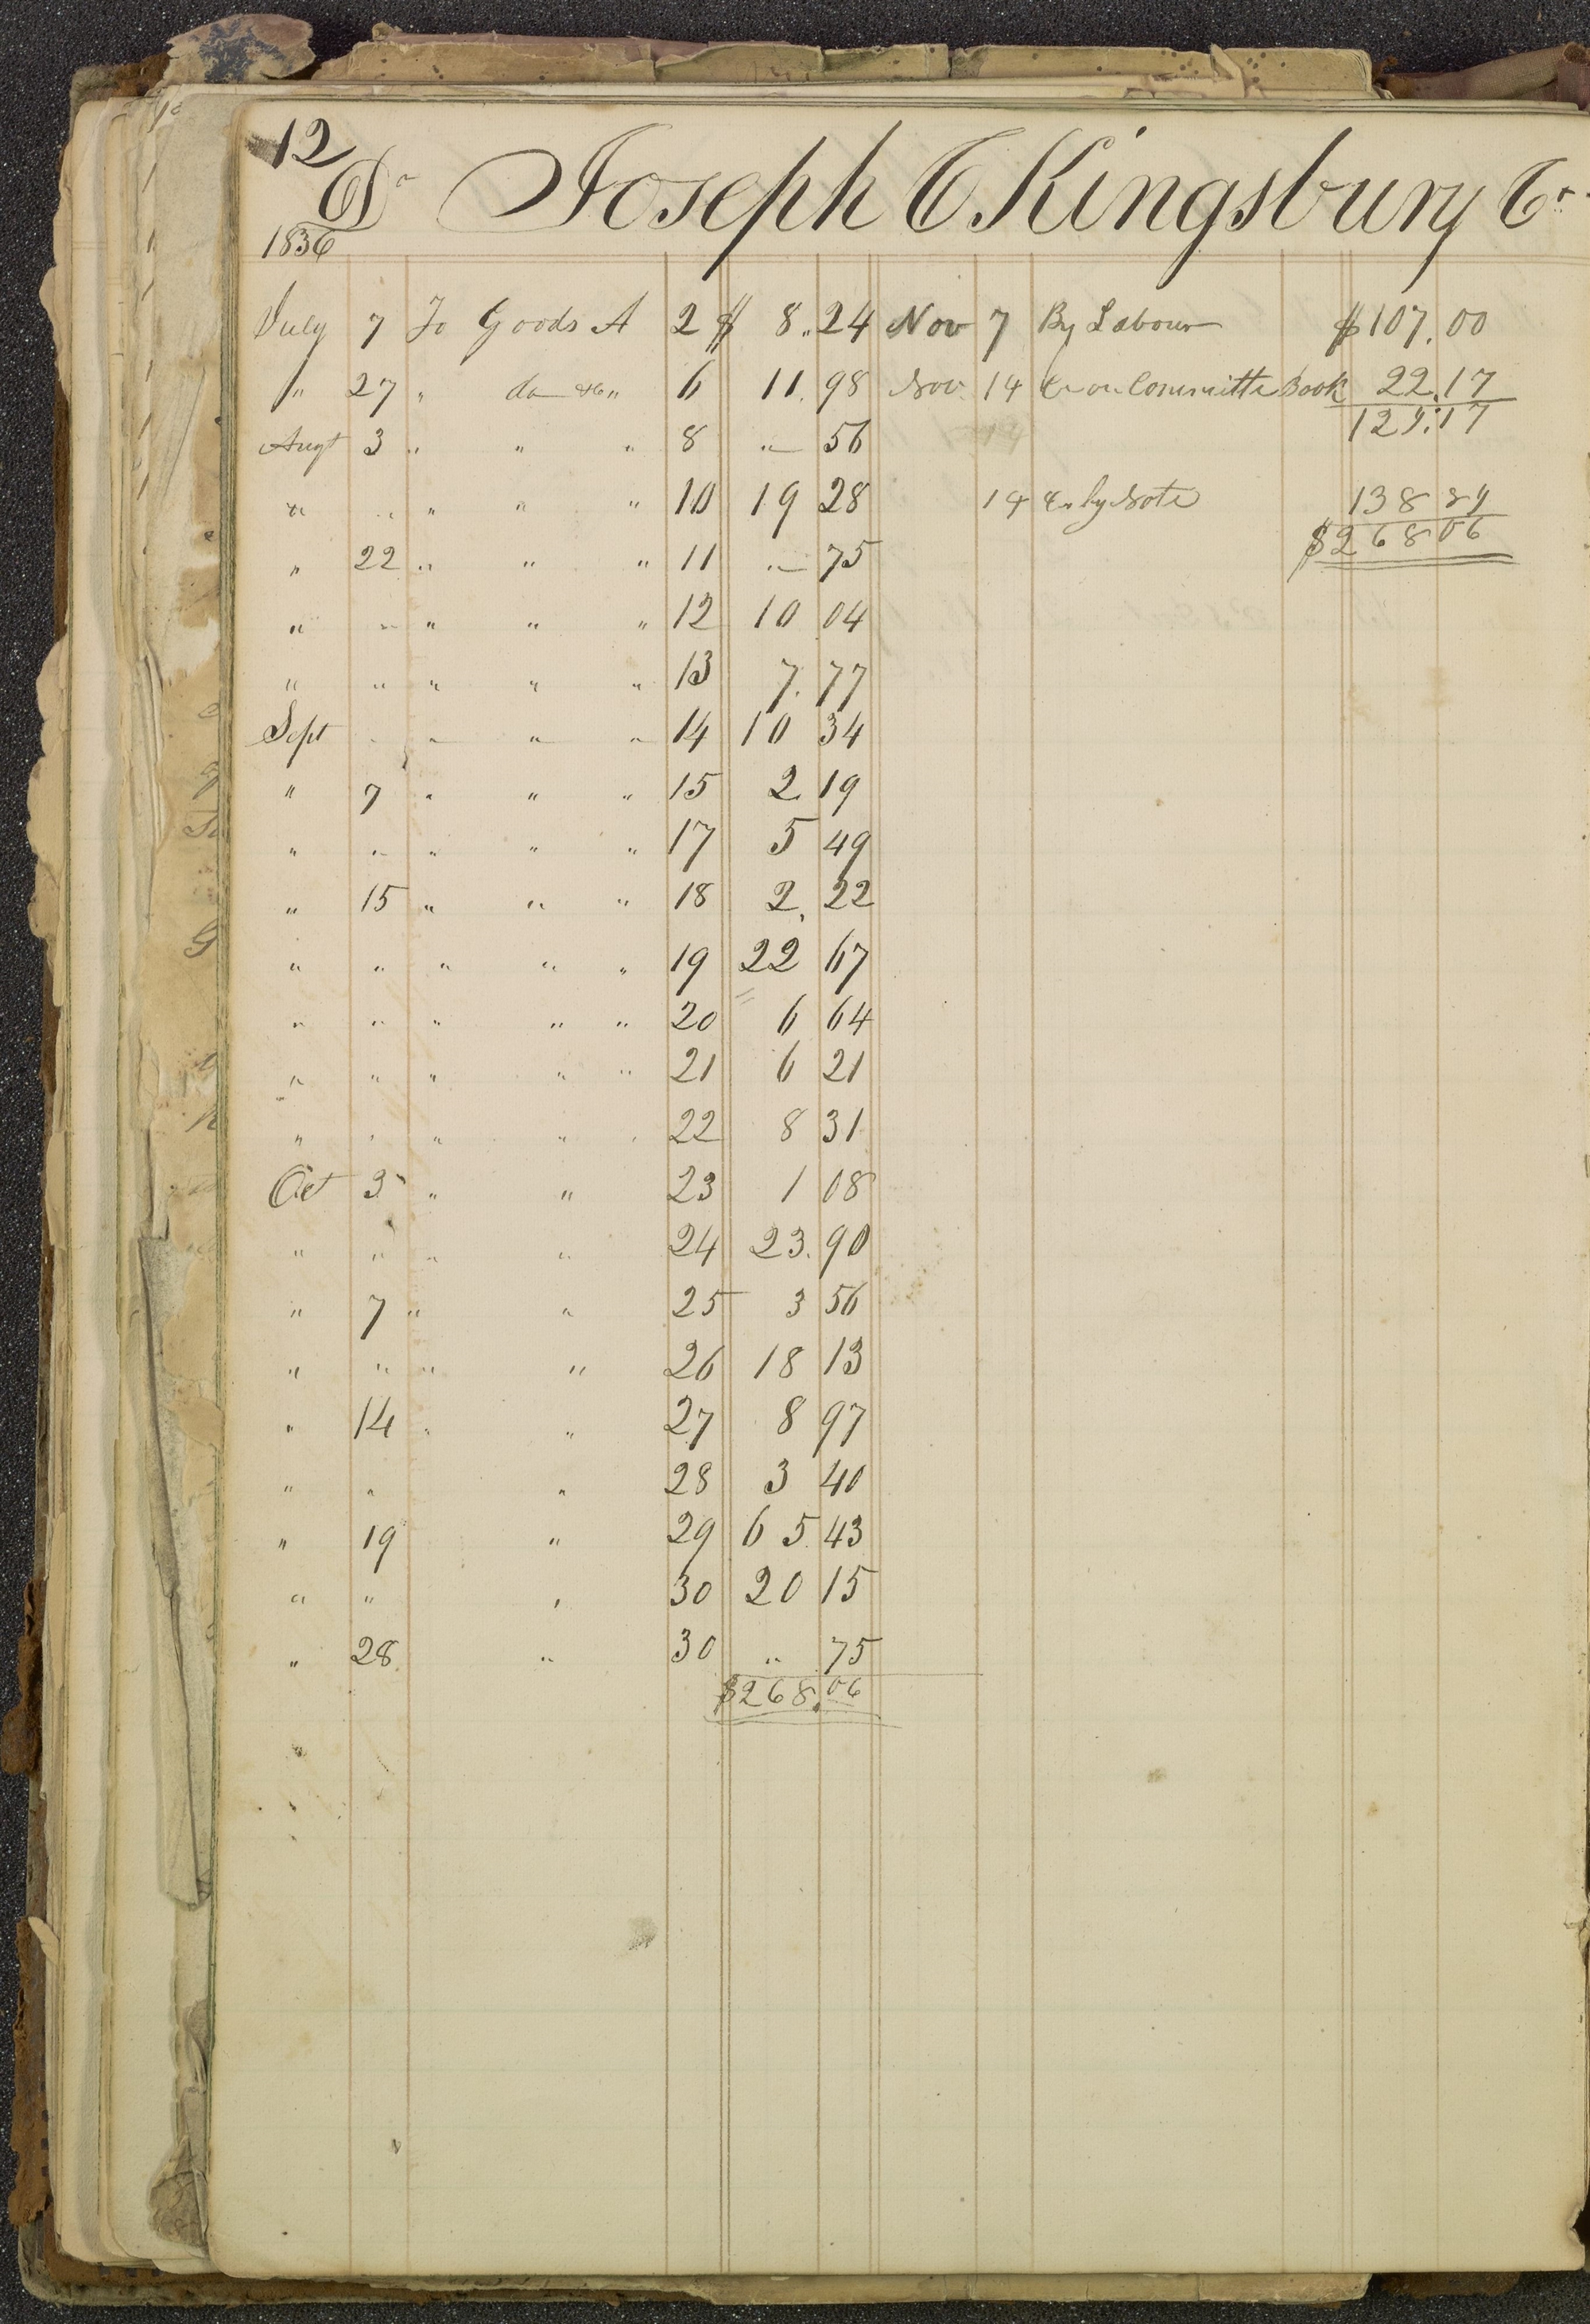 12
Dr Joseph C Kingsbury Cr
1836
July 7 To Goods A 2 $ 8.24 Nov 7 By Labour $107.00
" 27 " do " 6 11.98 Nov. 14 Cr on Committe Book 22.17
129.17
Augt 3 " " " 8 .— 56
" " " " " 10 19 28 14 Cr by Note 138 89
$268 06
" 22 " " " 11 .— 75
" " " " " 12 10 04
" " " " " 13 7.77
Sept " " " " 14 10 34
" 7 " " " 15 2 19
" " " " " 17 5 49
" 15 " " " 18 2.22
" " " " " 19 22 67
" " " " " 20 6 64
" " " " " 21 6 21
" " " " " 22 8 31
Oct 3 " " 23 1 08
" " " " 24 23.90
" 7 " " 25 3 56
" " " " 26 18 13
" 14 " " 27 8 97
" " " 28 3 40
" 19 " 29 65.43
" " " 30 20 15
" 28 " 30 " 75
$268.06